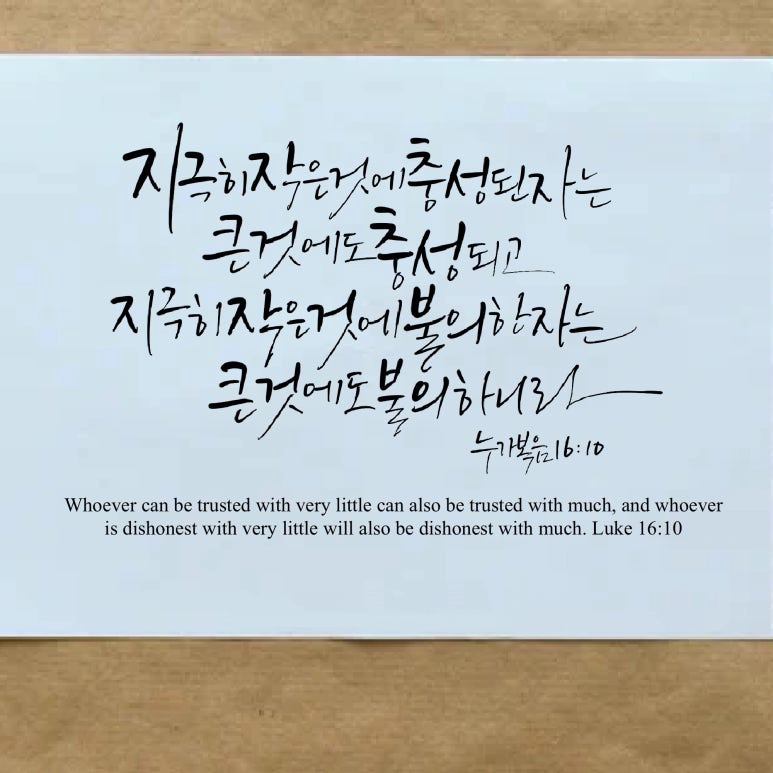 지극히 작은 것에 충성된 자는
큰 것에도 충성되고
지극히 작은 것에 불의한 자는
큰 것에도 불의하니라
누가복음 16:10
Whoever can be trusted with very little can also be trusted with much, and whoever
is dishonest with very little will also be dishonest with much. Luke 16:10